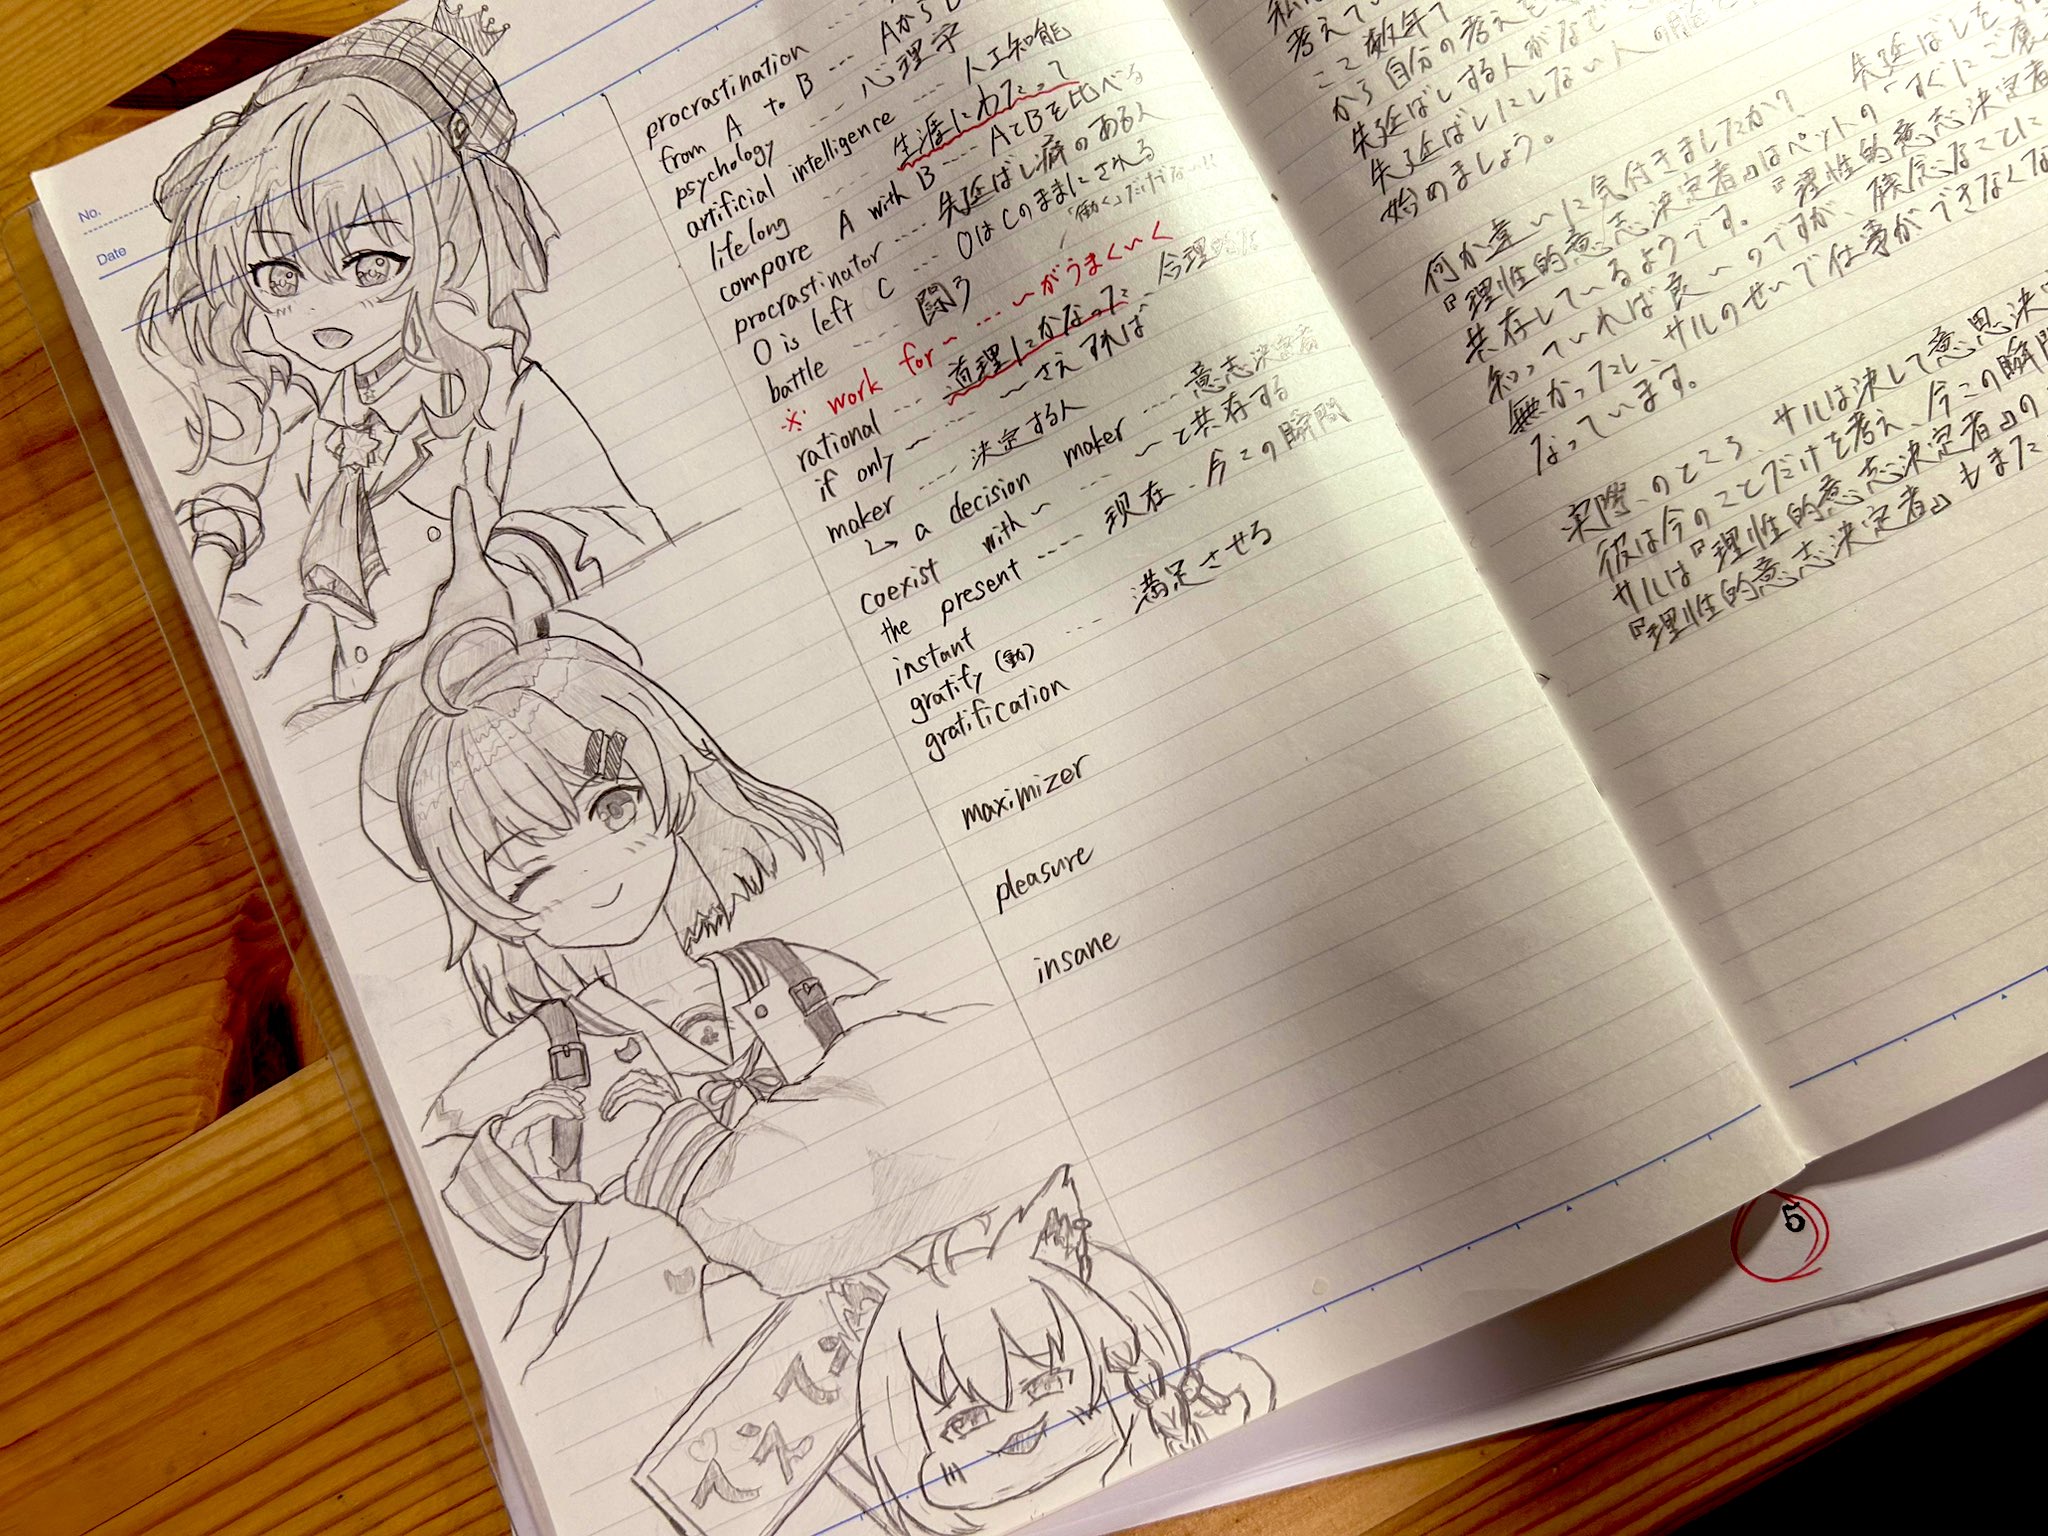 No.
Date
procrastination
from A to B ---- AからB
psychology ---- 心理学
artificial intelligence ---- 人工知能
lifelong ---- 生涯にわたって
compare A with B ---- AとBを比べる
procrastinator ---- 先延ばし癖のある人
O is left C --- OはCのままにされる
battle ---- 闘う
「働く」だけじゃない!!
※ work for ~ --- ~がうまくいく
rational ---- 道理にかなった、合理的な
if only ~ ---- ~さえすれば
maker ---- 決定する人
↳ a decision maker ---- 意志決定者
coexist with ~ --- ~と共存する
the present ---- 現在、今この瞬間
instant
gratify (動) ---- 満足させる
gratification
maximizer
pleasure
insane
考えてい
ここ数年で
から自分の考えを
先延ばしする人がなぜ
先延ばしにしない人の脳
始めましょう。
何か違いに気付きましたか? 先延ばしをす
『理性的意志決定者』はペットの「すぐにご褒
共存しているようです。『理性的意志決定者
知っていれば良いのですが、残念なことに
無かったし、サルのせいで仕事ができなくな
なっています。
実際のところ、サルは決して意思決
彼は今のことだけを考え、今この瞬間
サルは『理性的意志決定者』の
『理性的意志決定者』もまた
5